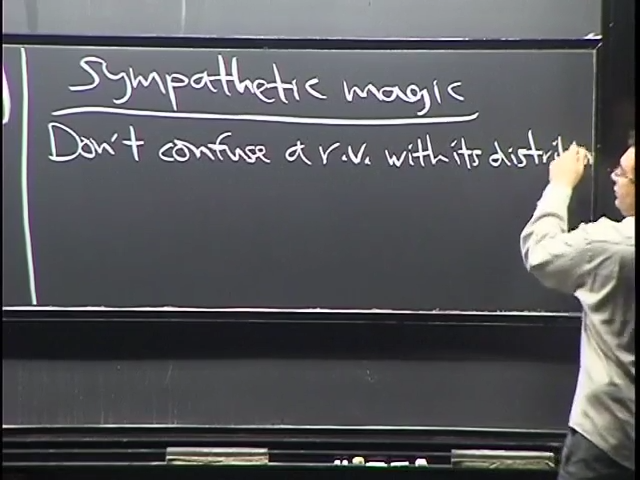 Sympathetic magic
Don't confuse a r.v. with its distrib